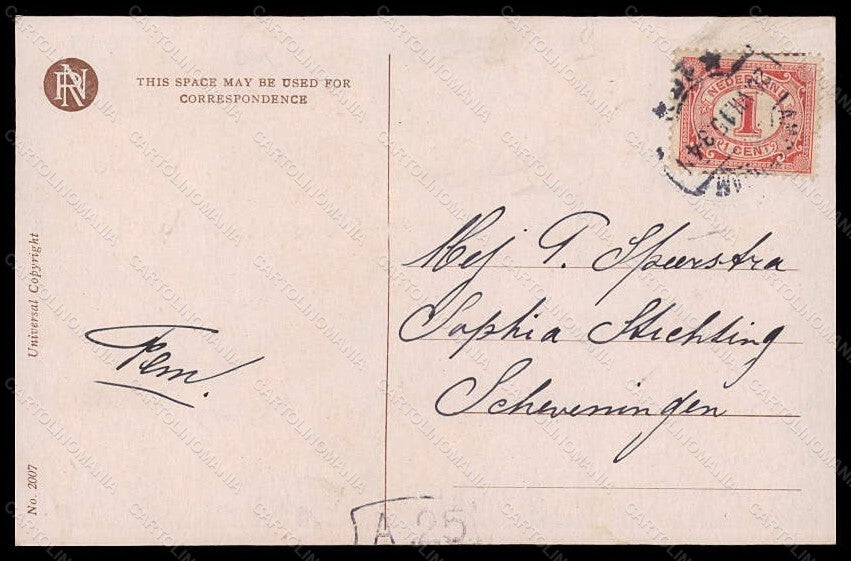 RN
THIS SPACE MAY BE USED FOR
CORRESPONDENCE
NEDERLAND
1
CENT
Mej T. Speerstra
Sophia Stichting
Scheveningen
Fem.
Universal Copyright
No. 2007
A 25
CARTOLINOMANIA